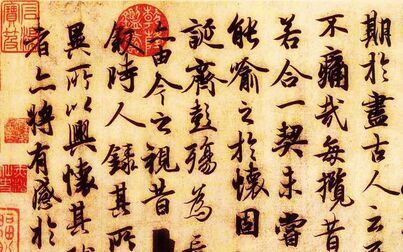 期於盡古人云
不痛哉每攬昔
若合一契未嘗
能喻之於懷固
誕齊彭殤為
由今之視昔
敘時人錄其所
異所以興懷其
者亦將有感於